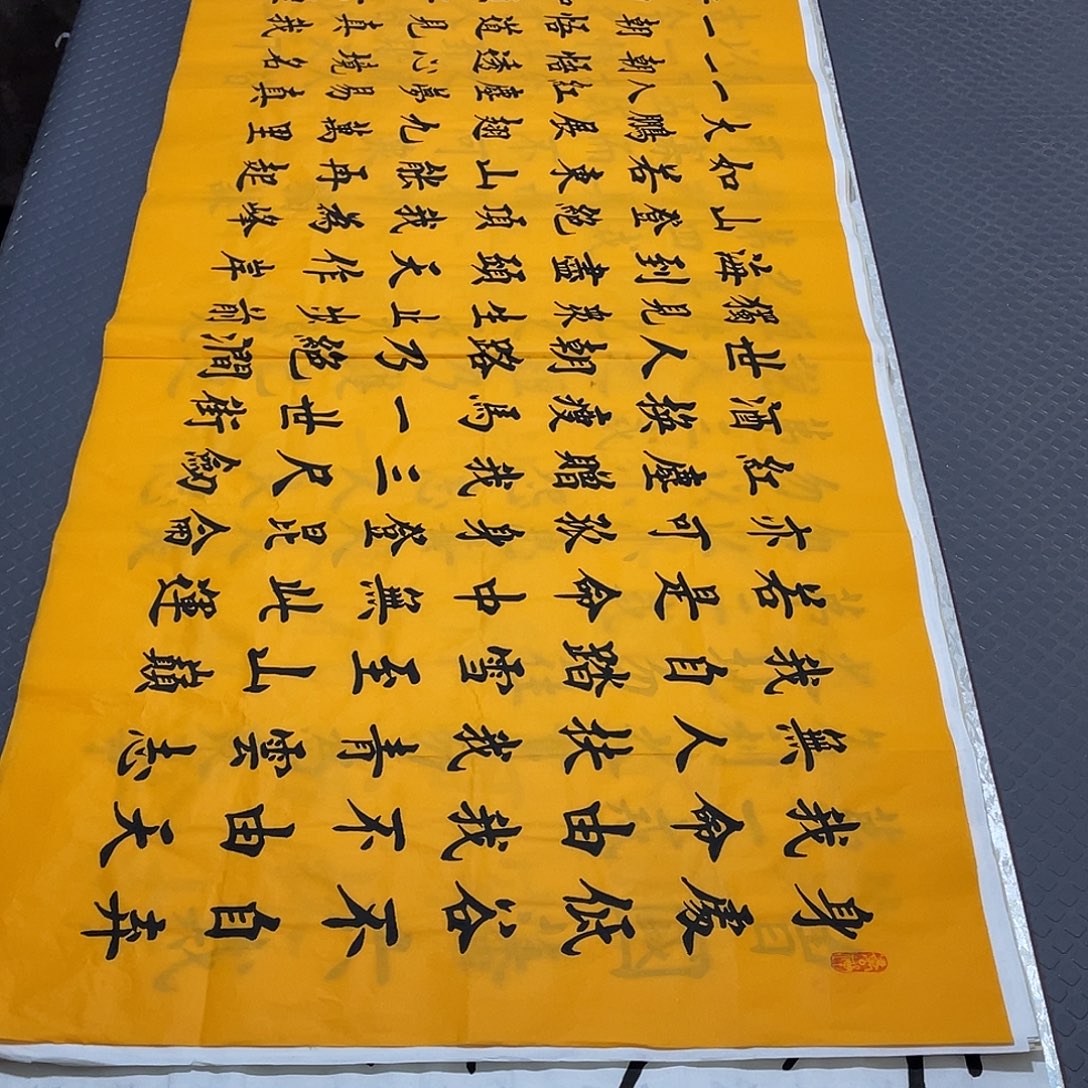 身處低谷不自弃
我命由我不由天
無人扶我青雲志
我自踏雪至山巔
若是命中無此運
亦可孤身登昆侖
紅塵贈我三尺劍
酒換瘦馬一世街
世人朝路乃絕澗
獨見眾生止步前
海到盡頭天作岸
山登絕頂我為峰
如若東山能再起
大鵬展翅九萬里
一人紅塵夢易真
一朝悟透心境名
一朝悟道見真我